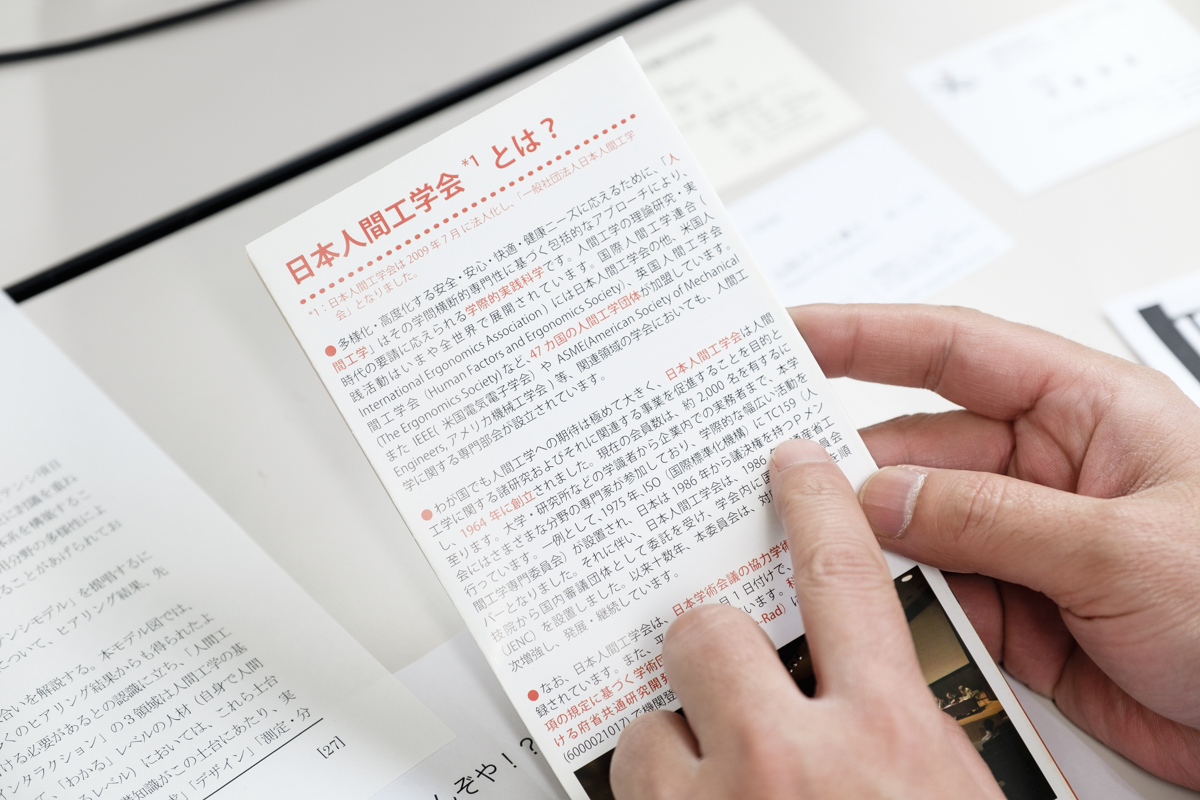 日本人間工学会*1 とは？
*1：日本人間工学会は2009年7月に法人化し、「一般社団法人日本人間工学
会」となりました。
●多様化・高度化する安全・安心・快適・健康ニーズに応えるために、「人
間工学」はその学問横断的専門性に基づく包括的なアプローチにより、
時代の要請に応えられる学際的実践科学です。人間工学の理論研究・実
践活動はいまや全世界で展開されています。国際人間工学連合（
International Ergonomics Association）には日本人間工学会の他、米国人
間工学会（Human Factors and Ergonomics Society）、英国人間工学会
(The Ergonomics Society)など、47カ国の人間工学団体が加盟しています。
また IEEE( 米国電気電子学会）や ASME(American Society of Mechanical
Engineers, アメリカ機械工学会）等、関連領域の学会においても、人間工
学に関する専門部会が設置されています。
●わが国でも人間工学への期待は極めて大きく、日本人間工学会は人間
工学に関する諸研究およびそれに関連する事業を促進することを目的と
し、1964年に創立されました。現在の会員数は、約2,000名を有するに
至ります。大学・研究所などの学識者から企業内での実務者まで、本学
会にはさまざまな分野の専門家が参加しており、学際的な幅広い活動を
行っています。一例として、1975年、ISO（国際標準化機構）にTC159（人
間工学専門委員会）が設置され、日本は1986年から議決権を持つPメン
バーとなりました。それに伴い、日本人間工学会は、1986
技院から国内審議団体として委託を受け、学会内に
(JENC）を設置しました。以来十数年、本委員会は、対
次増強し、発展・継続しています。
●なお、日本人間工学会は、日本学術会議の協力学術
録されています。また、
月1日付けで、
項の規定に基づく学術
います。
ける府省共通研究開発
-Rad）
(6000021017）で機関登
アンシ項目
に討議を重ね
本系を構築するこ
用分野の多様性によ
ることがあげられてお
ンシモデル」を提唱するに
について、ヒアリング結果、先
合いを解説する。本モデル図では、
くのヒアリング結果からも得られたよ
ける必要があるとの認識に立ち、「人間工
ンタラクション」の3領域は人間工学の基
て、「わかる」レベルの人材（自身で人間
るレベル）においては、これら土台
礎知識がこの土台にあたり、実
「デザイン」「測定・分
[27]
んぞや！？